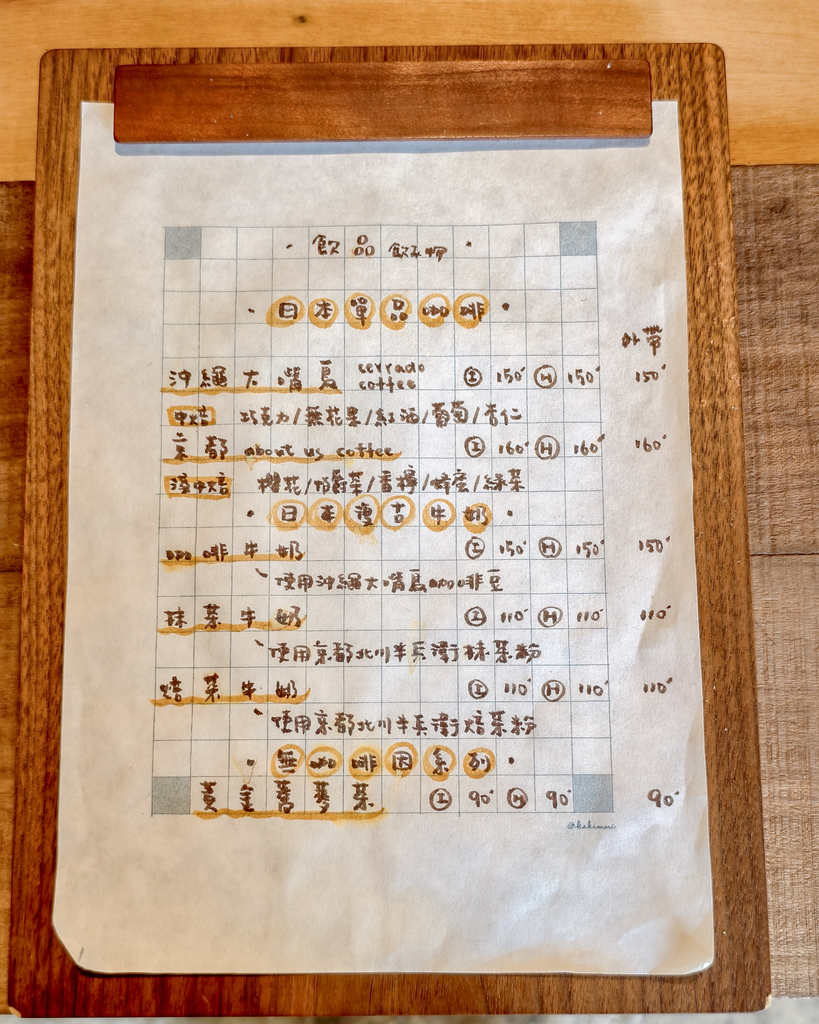 ・飲品 飲み物・
・日本單品咖啡・
外帶
沖繩大嘴鳥 cerrado coffee Ⓘ 150 Ⓗ 150 150
中焙 巧克力/無花果/紅酒/葡萄/杏仁
京都 about us coffee Ⓘ 160 Ⓗ 160 160
淺中焙 櫻花/伯爵茶/香檸/蜂蜜/綠茶
・日本濃古牛奶・
咖啡牛奶 Ⓘ 150 Ⓗ 150 150
使用沖繩大嘴鳥咖啡豆
抹茶牛奶 Ⓘ 110 Ⓗ 110 110
使用京都北川半兵衛抹茶粉
焙茶牛奶 Ⓘ 110 Ⓗ 110 110
使用京都北川半兵衛焙茶粉
・無咖啡因系列・
黃金蕎麥茶 Ⓘ 90 Ⓗ 90 90
@kakimori